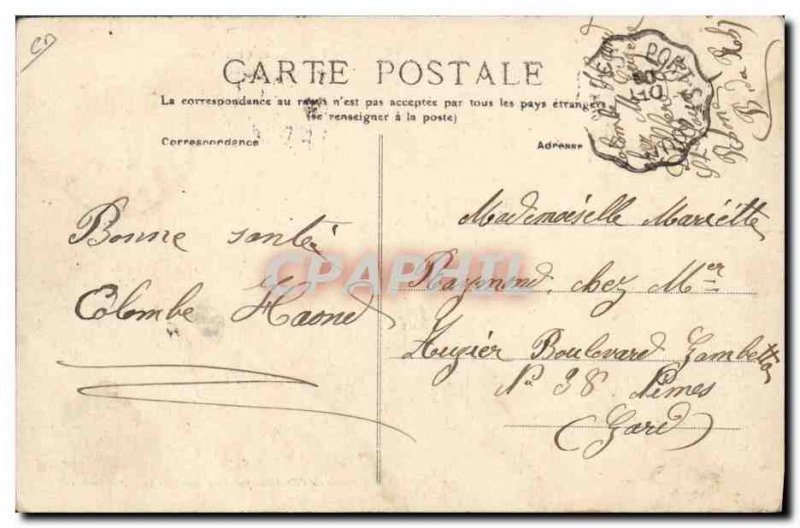 CARTE POSTALE
La correspondance au recto n'est pas acceptée par tous les pays étrangers
(se renseigner à la poste)
Correspondance
Adresse
Bonne santé
Colombe Haond
Mademoiselle Mariètte
Raymond, chez Mer
Augier Boulevard Gambetta
No 38 Nimes
(Gard)
CPAPHIL